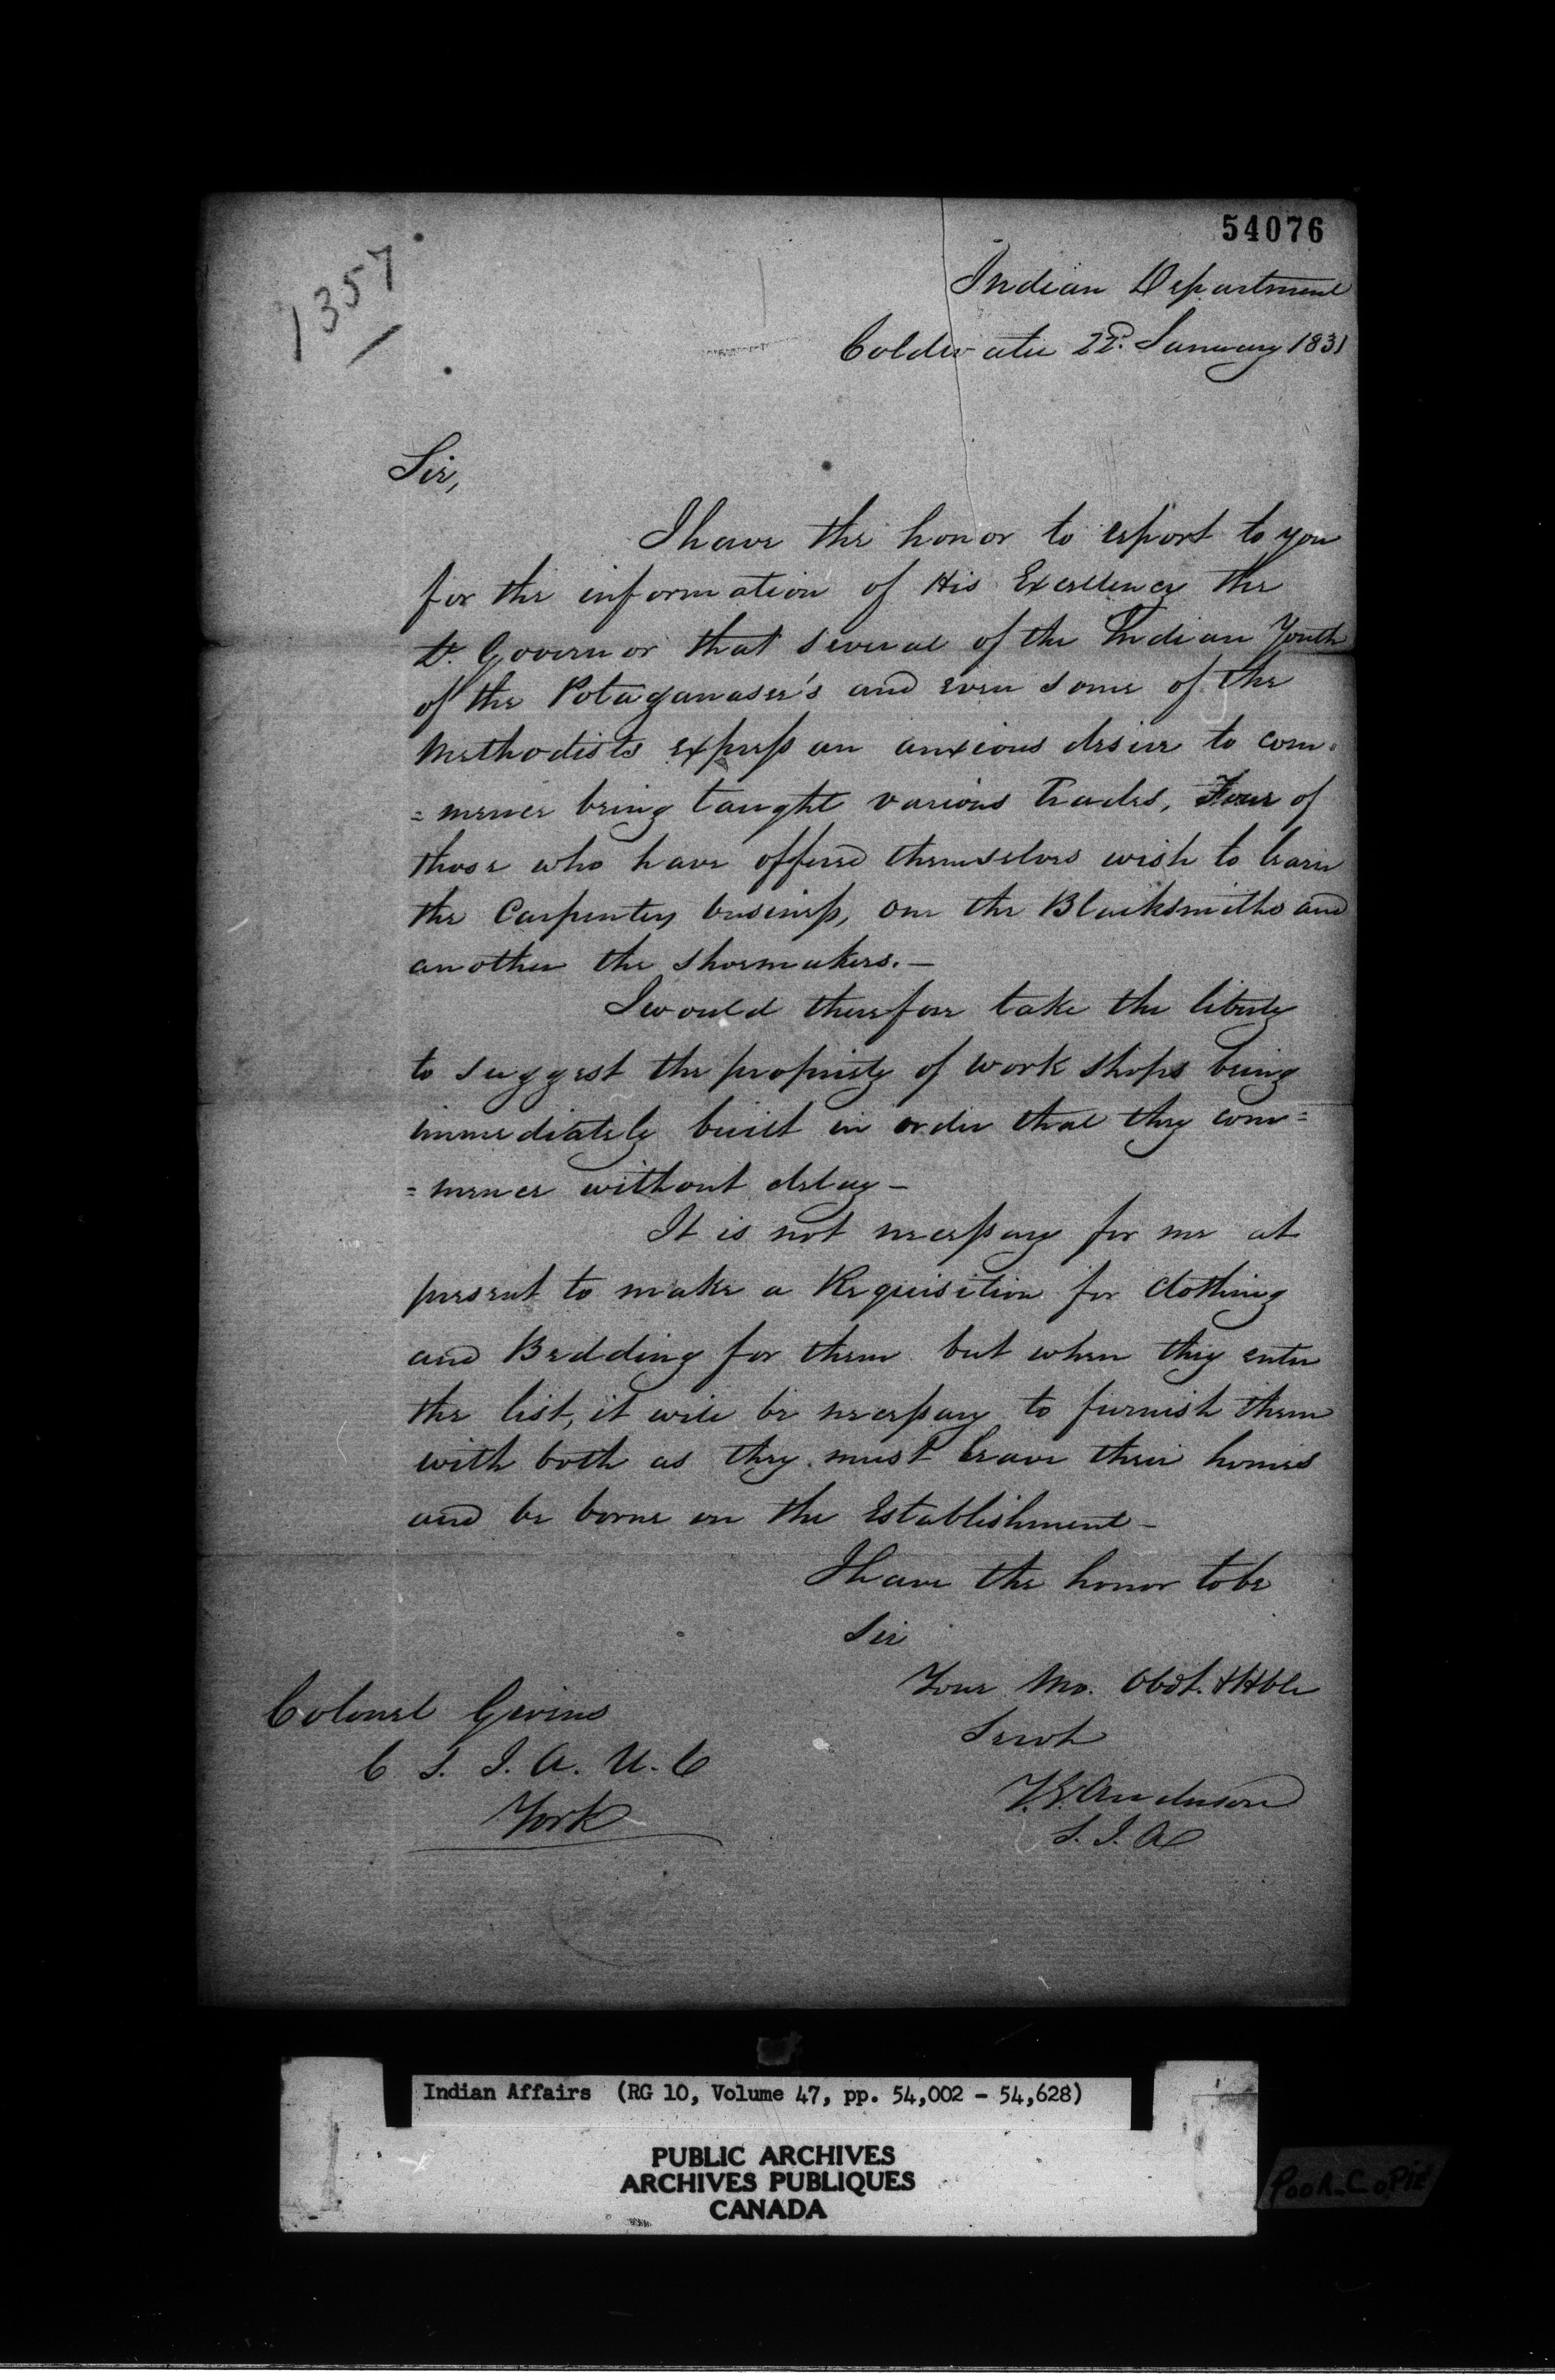 54076
1357
Indian Department
Coldwater 22d. January 1831
Sir,
I have the honor to report to you
for the information of His Excellency the
Lt. Governor that several of the Indian Youth
of the Potaganasee's and even some of the
Methodists express an anxious desire to com=
=mence being taught various Trades, Four of
those who have offered themselves wish to learn
the Carpenters business, one the Blacksmiths and
another the shoemakers.—
I would therefore take the liberty
to suggest the propriety of work shops being
immediately built in order that they com=
=mence without delay—
It is not necessary for me at
present to make a Requisition for Clothing
and Bedding for them but when they enter
the list, it will be necessary to furnish them
with both as they must leave their homes
and be borne on the Establishment—
I have the honor to be
Sir
Your Mo. Obdt. & Hble
Servt
T.G. Anderson
S. I. A
Colonel Givins
C. S. I. A. U. C
York
Indian Affairs (RG 10, Volume 47, pp. 54,002 - 54,628)
PUBLIC ARCHIVES
ARCHIVES PUBLIQUES
CANADA
POOR COPIE